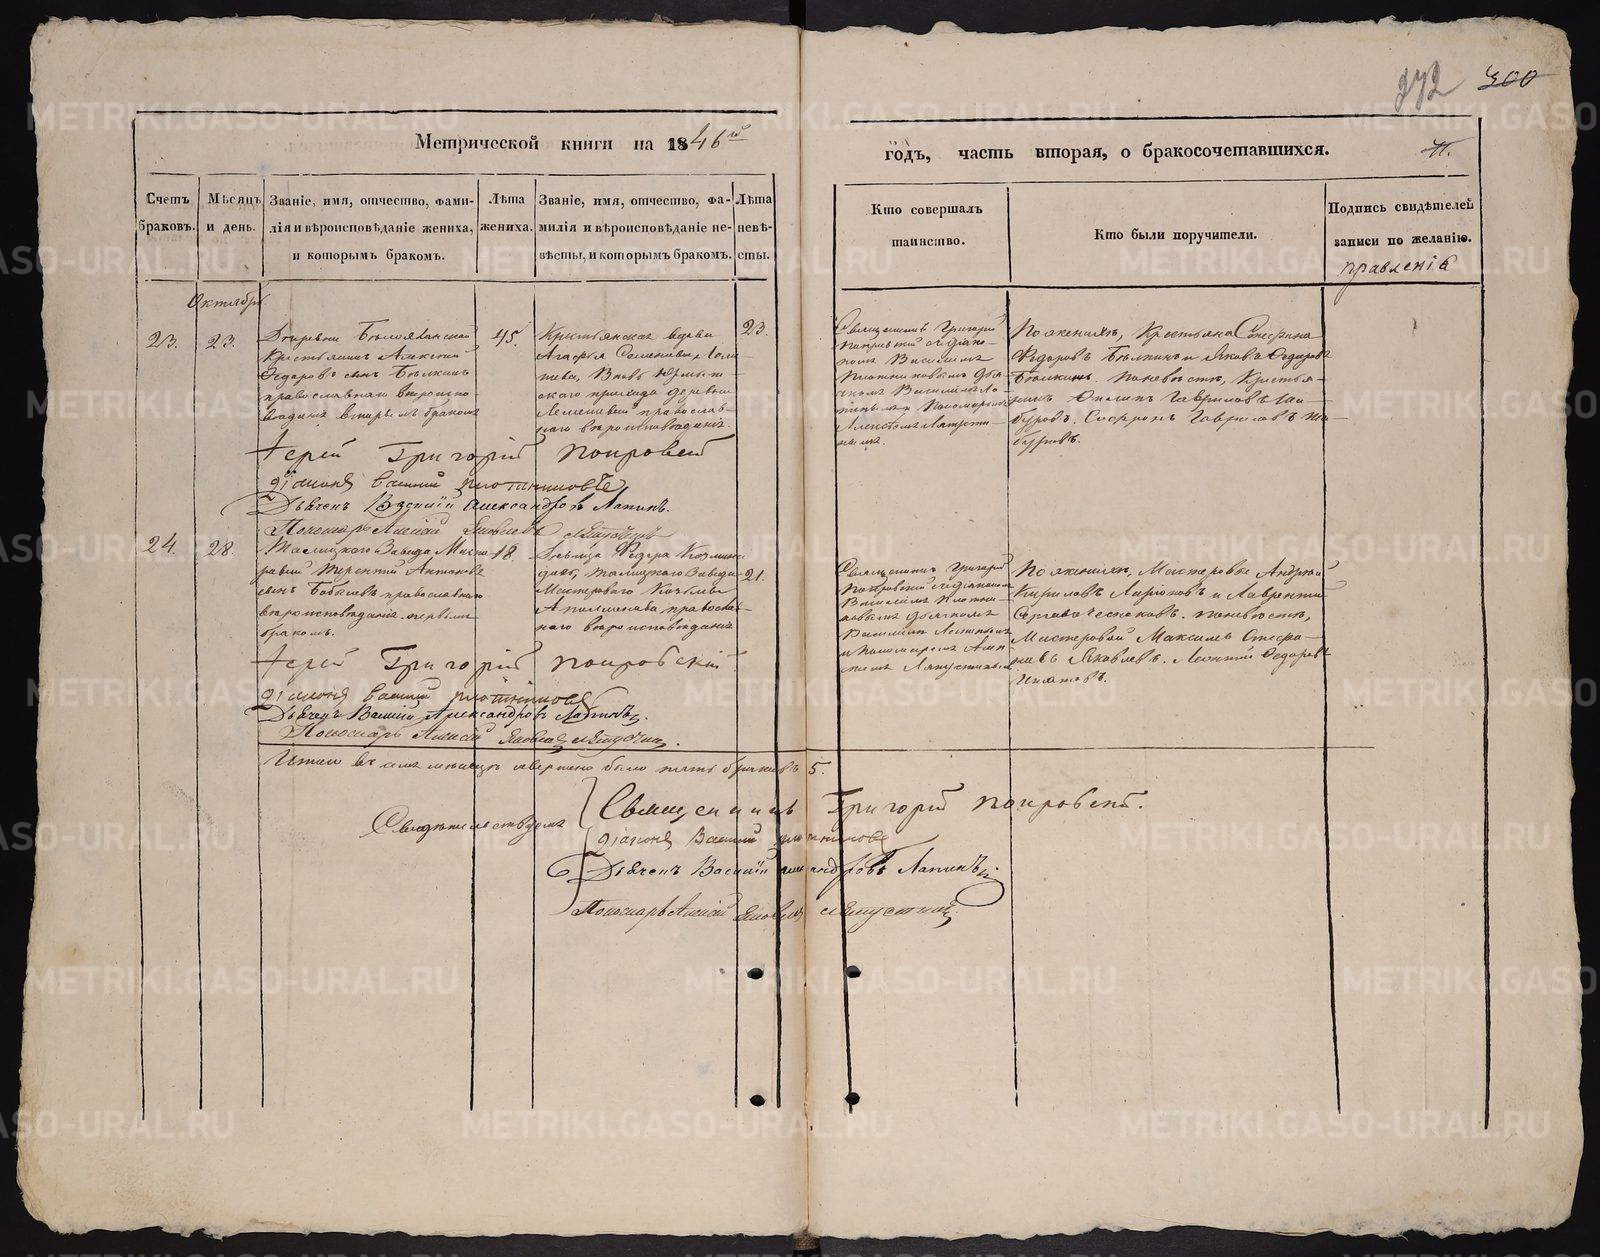 272 300
Метрической книги на 1846го
годъ, часть вторая, о бракосочетавшихся.
11.
Счетъ браковъ.
Мѣсяцъ и день.
Званіе, имя, отчество, фами-
лія и вѣроисповѣданіе жениха,
и которымъ бракомъ.
Лѣта
жениха.
Званіе, имя, отчество, фа-
милія и вѣроисповѣданіе не-
вѣсты, и которымъ бракомъ.
Лѣта
невѣ-
сты.
Кто совершалъ
таинство.
Кто были поручители.
Подпись свидѣтелей
записи по желанію.
Октябрь
23.
23.
Деревни
Крестьянинъ Алексій
Федоровъ сынъ Бѣлкинъ
православнаго вѣроиспо-
веданія вторымъ бракомъ
45.
Крестьянская вдова
Агафья Семенова
прихода деревни
православ-
наго вѣроисповѣданія.
23.
Священникъ Григорій
Покровскій съ діако-
номъ Василіемъ
Плотниковымъ дья-
чкомъ Василіемъ Ла-
пинымъ и Пономаремъ
Алексѣемъ Ляпусти-
нымъ.
По женихѣ, Крестьяна Стефанъ
Федоровъ Бѣлкинъ и Яковъ Федоровъ
Бѣлкинъ. По невѣстѣ, Крестья-
нинъ Филипъ Гавриловъ
Софронъ Гавриловъ
Іерей Григорій Покровскій
діаконъ Василій Плотниковъ
Дьячекъ Василій Александровъ Лапинъ.
Пономарь Алексій Яковлевъ Ляпустинъ
24.
28.
Талицкаго Завода Масте-
ровый Терентій Антоновъ
сынъ православнаго
вѣроисповѣданія первымъ
бракомъ.
18.
Девица Федора Козмина
дочь, Талицкаго Завода
Мастероваго Козьмы
православ-
наго вѣроисповѣданія
21.
Священникъ Григорій
Покровскій съ діакономъ
Василіемъ Плотни-
ковымъ дьячкомъ
Василіемъ Лапинымъ
и Пономаремъ Алек-
сѣемъ Ляпустинымъ
По женихѣ, Мастеровые Андрей
Кириловъ и Лаврентій
По невѣстѣ,
Мастеровой Максимъ Стефа-
новъ Яковлевъ. Леонтій Федоровъ
Іерей Григорій Покровскій.
діаконъ Василій Плотниковъ
Дьячекъ Василій Александровъ Лапинъ.
Пономарь Алексій Яковлевъ Ляпустинъ.
Итого въ семъ мѣсяцѣ свершено было пять браковъ 5.
Свидѣтельствуемъ
Священникъ Григорій Покровскій.
діаконъ Василій Плотниковъ
Дьячекъ Василій Александровъ Лапинъ
Пономарь Алексій Яковлевъ Ляпустинъ.
METRIKI.GASO-URAL.RU